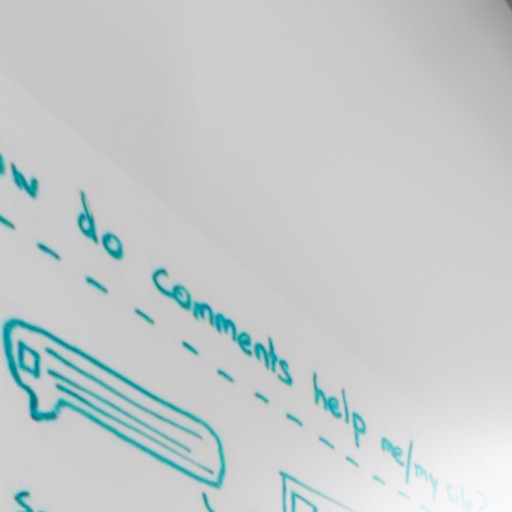 do comments help me/my site?